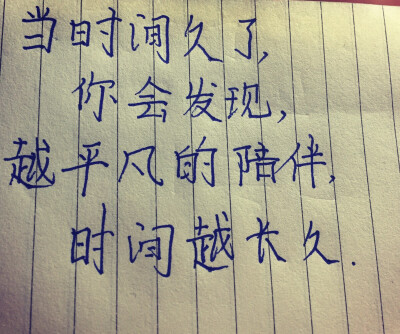 当时间久了,
你会发现,
越平凡的陪伴,
时间越长久.